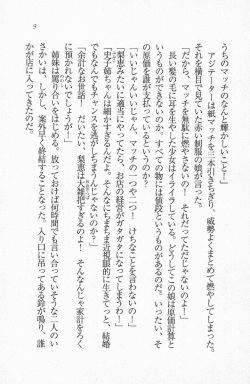 9
うちのマッチのなんと輝かしいこと！」
アジテーターは紙マッチを二本引きちぎり、威勢よくまとめて燃やしてしまった。
それを横目で見ていた赤い制服の娘が言った。
「だから、マッチを無駄に燃やさないの！　それだってただじゃないのよ」
長い髪の毛に耳を生やした少女はイライラしている。どうしてこの娘は原価計算と
いうものができないのか。すべての物には値段というものがあるのだ。いったい、そ
の原価を誰が支払っているというのか。
「いいじゃんいいじゃん、マッチの一つや二つ！　けちなことを言わないの！」
「梨恵みたいに適当にやってたら、お店の経営がガタガタになってしまうわ！」
「史子姉ちゃんは細かすぎるんだよ。そんなにちまちま近視眼的に生きてっと、結婚
でもなんでもチャンスを逃がしちまうんじゃないのか？」
「余計なお世話！　だいたい、梨恵は大雑把すぎるのよ！　そんなんじゃ家計をろく
に預かれないでしょうが！」
姉妹は罵り合いを演じる。放っておけば何時間でも言い合っていそうな二人の
さえずりは、しかし、案外早く終結することになった。入り口に吊してある鈴が鳴り、誰
かが店に入ってきたのだった。